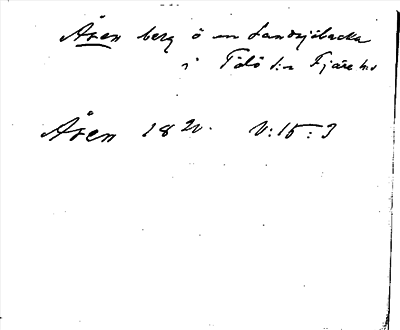 Åsen berg ö om Landsjöbacka
i Tölö s:n Fjäre hd
Åsen 182 V:15:3